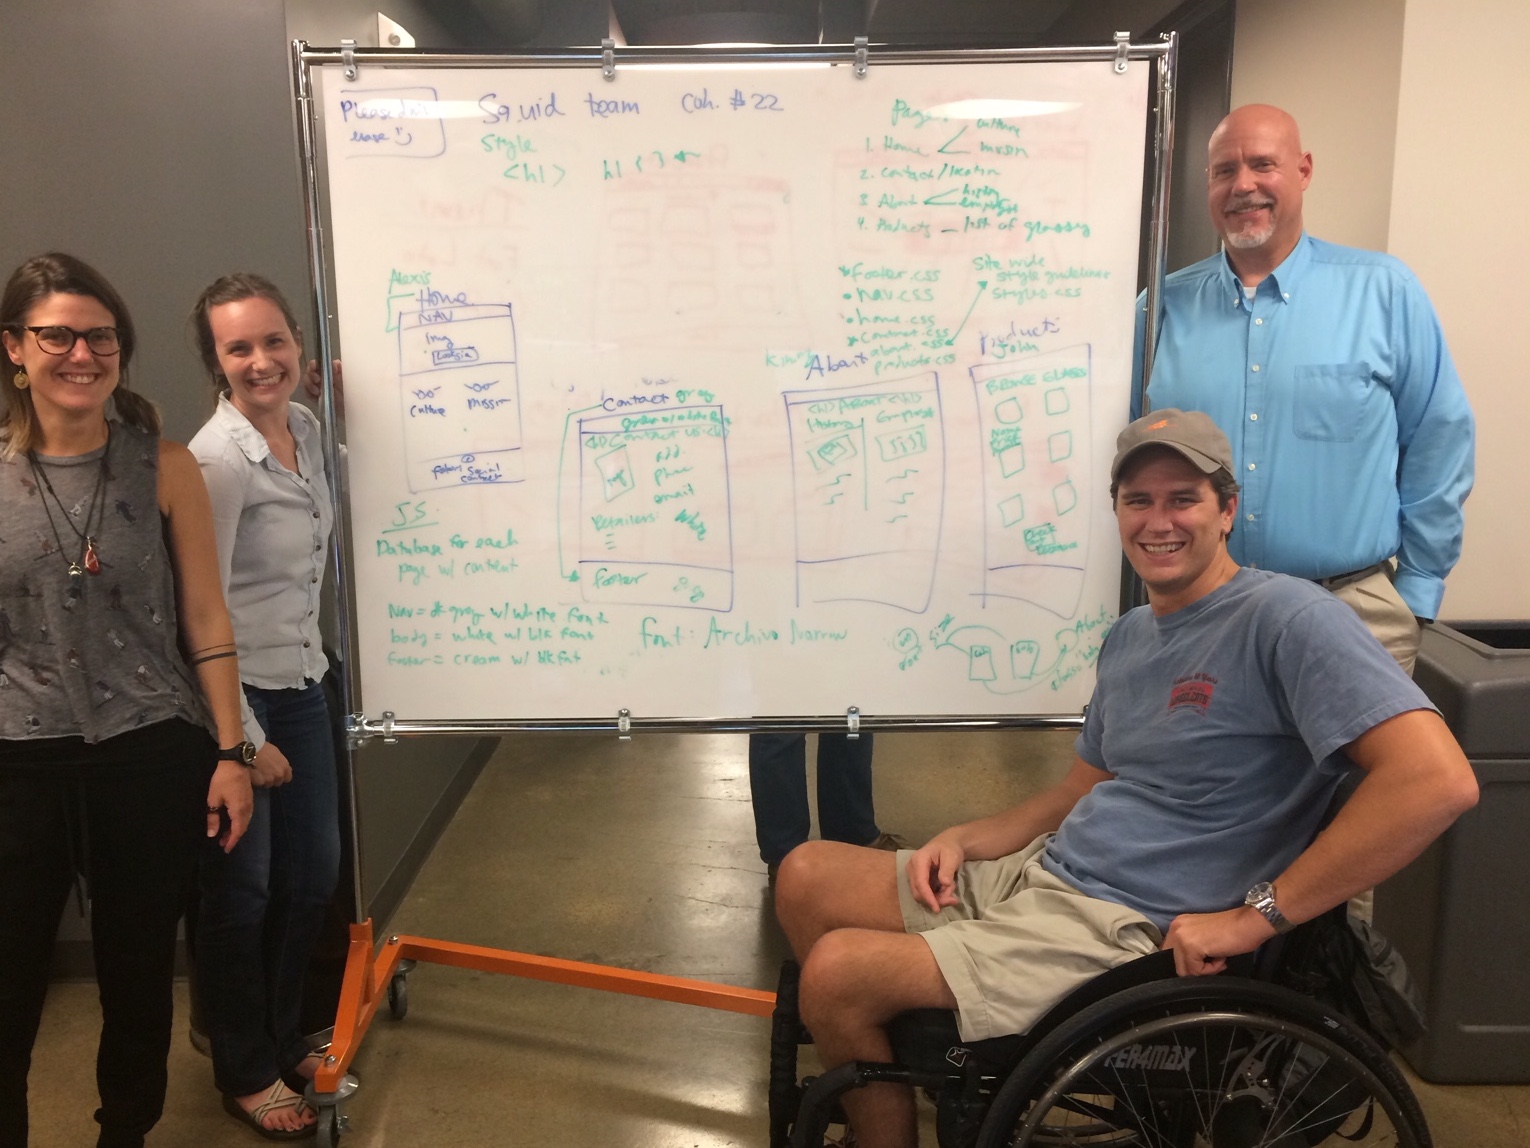 Please don't
erase :)
Squid team Coh. #22
Style
<h1> h1 { }
Pages
1. Home culture
mission
2. Contact/location
3. About history
employees
4. Products — list of glasses
Footer.css
nav.css
home.css
Contact.css
about.css
products.css
Site wide
style guidelines
styles.css
Alexis
Home
NAV
Img
Culture mission
footer Social
contact
Contact
<h1> Contact us <h1>
add.
phone
email
Retailers
footer
About
<h1> About <h1>
History Employees
Products
John
BROWSE GLASSES
JS
Database for each
page w/ content
Nav = dk gray w/ white font
body = white w/ blk font
footer = cream w/ blk font
font: Archivo Narrow
TER4MAX